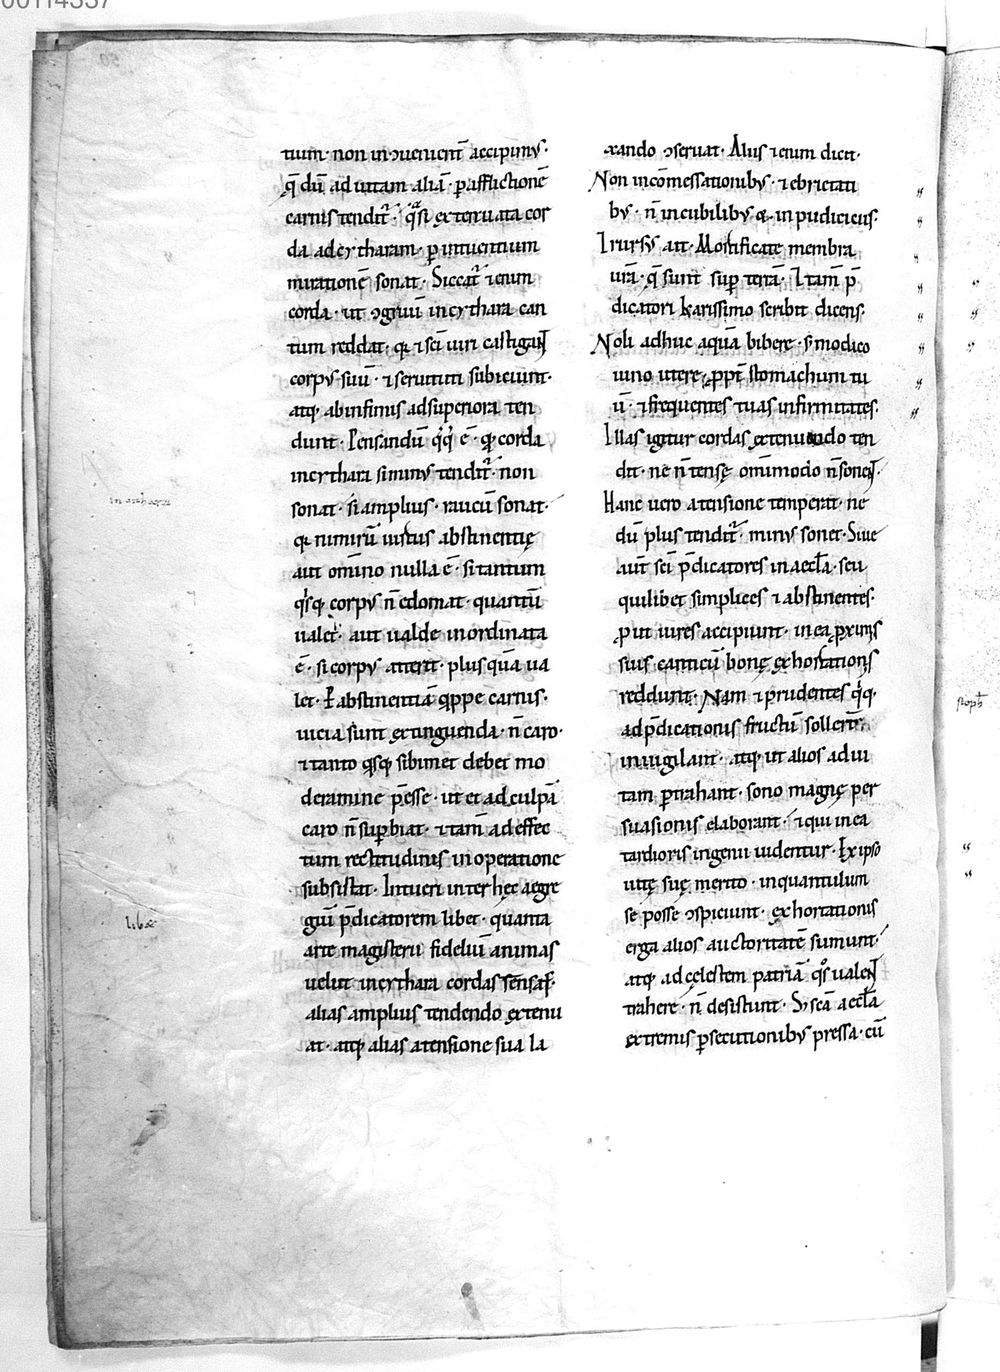 tium· non inↄuenient̄ accipimꝰ·
q̄ dū ad uitam aliā· ꝑ afflictionē
carnis tendit᷑· q̊si extenuata cor
da ad cytharam· ꝑ intuentium
mirationē sonat· Siccat᷑ ⁊enim
corda· ut ↄgruū in cythara can
tum reddat· qꝛ ⁊ sc̄i uiri castigant
corpꝰ suū· ⁊ seruituti subiciunt·
atq; ab infimis ad superiora ten
dunt· Pensandū q̊q; ē· qđ corda
in cythara si minꝰ tendit᷑· non
sonat· si amplius· raucū sonat·
qꝛ nimirū uirtus abstinentię
aut om̄ino nulla ē· si tantum
q̇sq; corpꝰ n̄ edomat· quantū
ualet· aut ualde inordinata
ē· si corpꝰ atterit· plus quā ua
let· ꝑ abstinentiā q̇ppe carnis·
uicia sunt extinguenda· n̄ caro·
⁊ tanto q̇sq; sibimet debet mo
deramine p̄esse· ut et ad culpā
caro n̄ suꝑbiat· ⁊ tam̄ ad effec
tum rectitudinis in operatione
subsistat· Intueri inter hęc aegre
giū p̄dicatorem libet· quanta
arte magisterii fideliū animas
uelut in cythara cordas
alias amplius tendendo extenu
at· atq; alias a tensione sua la
xando ↄseruat· Aliis ⁊enim dicit·
Non in com̄essationibꝰ· ⁊ ebrietati
bꝰ· n̄ in cubilibꝰ & inpudiciciis·
Irursꝰ ait· Mortificate membra
urā· q̄ sunt suꝑ terrā· I tam̄ p̄
dicatori karissimo scribit dicens·
Noli adhuc aquā bibere· s; modico
uino utere· ꝓpt̄ stomachum tu
ū· ⁊ frequentes tuas infirmitates·
Illas igitur cordas extenuando ten
dit· ne n̄ tensę om̄imodo n̄ sonent·
Hanc uero a tensione temperat· ne
dū plus tendit᷑· minꝰ sonet· Siue
aut̄ sc̄i p̄dicatores in aecl̄a· seu
quilibet simplices ⁊ abstinentes·
ꝓut uires accipiunt· in ea ꝓximis
suis canticū bonę exhortationis
reddunt· Nam ⁊ prudentes q̇q;
ad p̄dicationis fructū sollert̄
inuigilant· atq; ut alios ad ui
tam ꝑtrahant· sono magnę per
suasionis elaborant· ⁊ qui in ea
tardioris ingenii uidentur· Ex ipso
uitę suę merito· inquantulum
se posse ↄspiciunt· exhortationis
erga alios auctoritatē sumunt·
atq; ad cęlestem patriā q̊s ualent
trahere· n̄ desistunt· S; sc̄a aecl̄a
extremis ꝑsecutionibꝰ pressa· cū
libᵉ